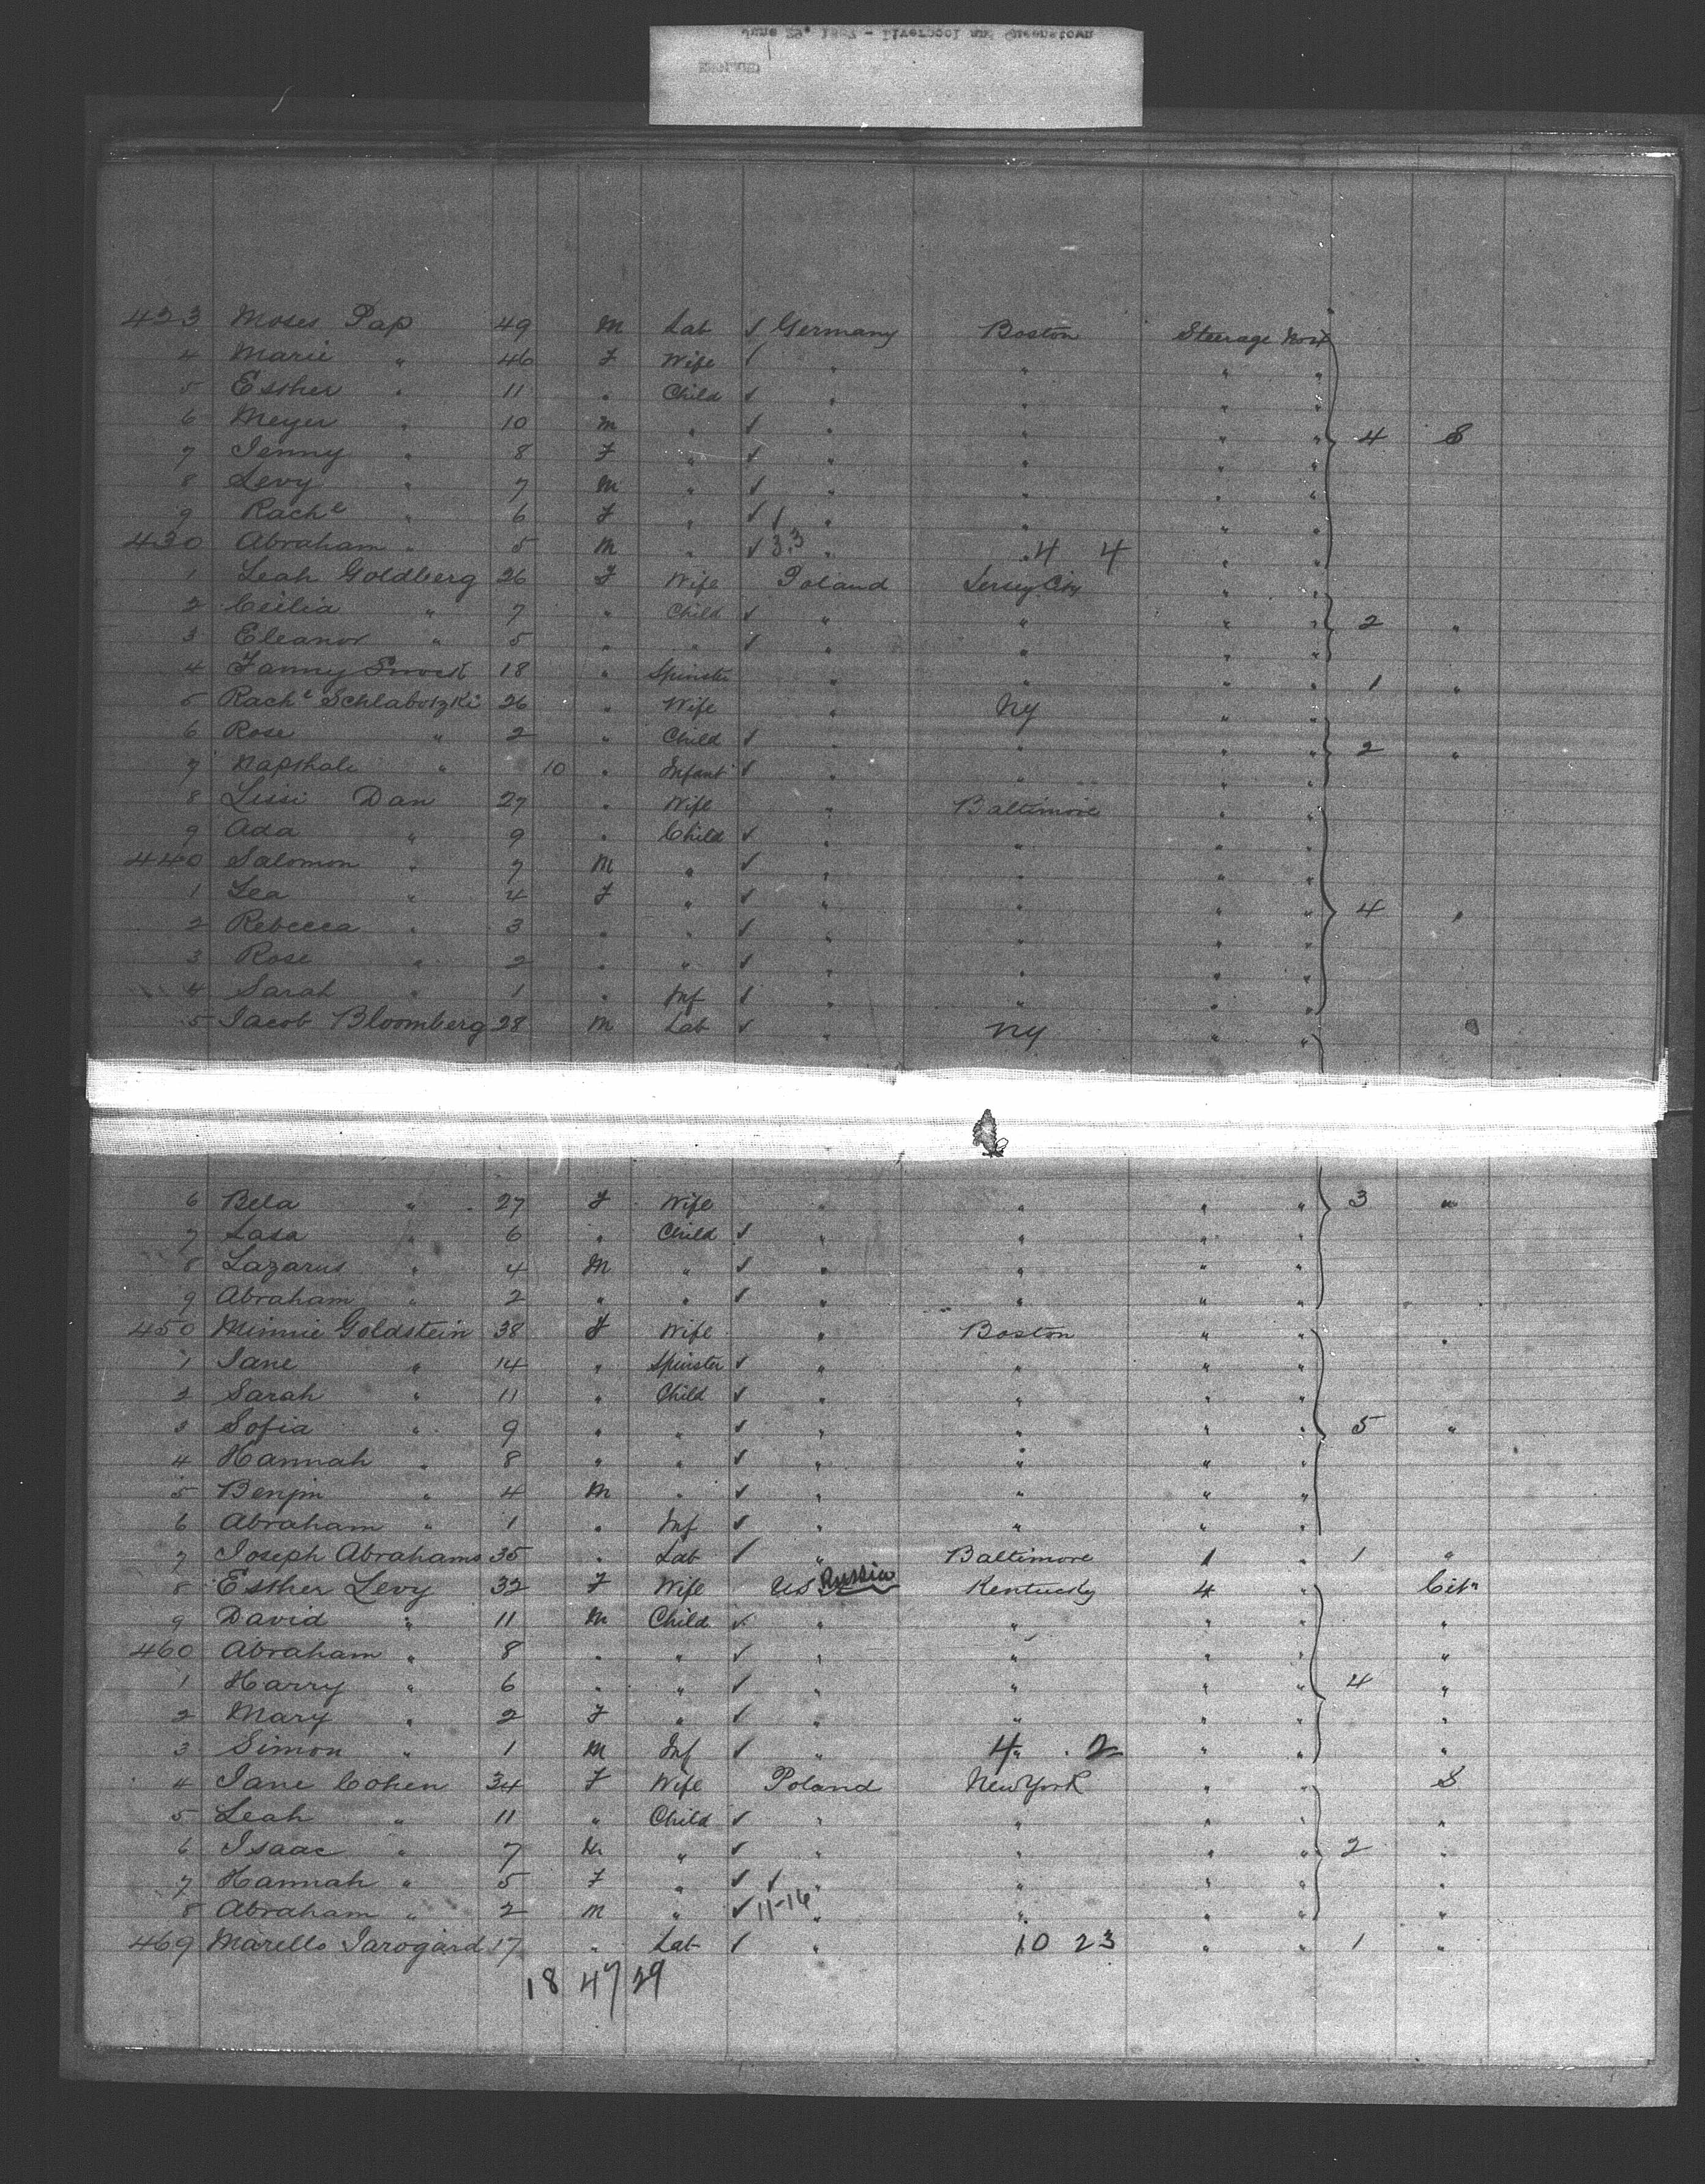 June 29, 1887 - Liverpool and Queenstown
423 Moses Pap 49 M Lab ✓ Germany Boston Steerage
4 Marie " 46 F Wife ✓ " " " "
5 Esther " 11 " Child ✓ " " " "
6 Meyer " 10 M " ✓ " " " " 4 S
7 Jenny " 8 F " ✓ " " " "
8 Levy " 7 M " ✓ " " " "
9 Rachl " 6 F " ✓ " " " "
430 Abraham " 5 M " ✓ 3.3 " " 4 4 " "
1 Leah Goldberg 26 F Wife Poland Jersey City " "
2 Cecilia " 7 " Child ✓ " " " " 2 "
3 Eleanor " 5 " " ✓ " " " "
4 Fanny 18 " Spinster " " " " 1 "
5 Rachl Schlabotzki 26 " Wife " NY " "
6 Rose " 2 " Child ✓ " " " " 2 "
7 Napthale " 10 " Infant ✓ " " " "
8 Lissi Dan 27 " Wife " Baltimore " "
9 Ada " 9 " Child ✓ " " " "
440 Salomon " 7 M " ✓ " " " "
1 Lea " 4 F " ✓ " " " " 4 "
2 Rebecca " 3 " " ✓ " " " "
3 Rose " 2 " " ✓ " " " "
4 Sarah " 1 " Inf ✓ " " " "
5 Jacob Bloomberg 28 M Lab ✓ " NY " "
6 Bela " 27 F Wife " " " " 3 "
7 Lasa " 6 " Child ✓ " " " "
8 Lazarus " 4 M " ✓ " " " "
9 Abraham " 2 " " ✓ " " " "
450 Minnie Goldstein 38 F Wife " Boston " " "
1 Jane " 14 " Spinster ✓ " " " "
2 Sarah " 11 " Child ✓ " " " "
3 Sofia " 9 " " ✓ " " " " 5 "
4 Hannah " 8 " " ✓ " " " "
5 Benjm " 4 M " ✓ " " " "
6 Abraham " 1 " Inf ✓ " " " "
7 Joseph Abrahams 35 " Lab ✓ " Baltimore 1 " 1 "
8 Esther Levy 32 F Wife US Russia Kentucky 4 " Citn
9 David " 11 M Child ✓ " " " " "
460 Abraham " 8 " " ✓ " " " " "
1 Harry " 6 " " ✓ " " " " 4 "
2 Mary " 2 F " ✓ " " " " "
3 Simon " 1 M Inf ✓ " 4 " 2 " " "
4 Jane Cohen 34 F Wife Poland New York " " S
5 Leah " 11 " Child ✓ " " " " "
6 Isaac " 7 M " ✓ " " " " 2 "
7 Hannah " 5 F " ✓ ✓ " " " " "
8 Abraham " 2 M " ✓ 11-16 " " " " "
469 Marello Jarogard 17 " Lab ✓ " 10 23 " " 1 "
18 47 29